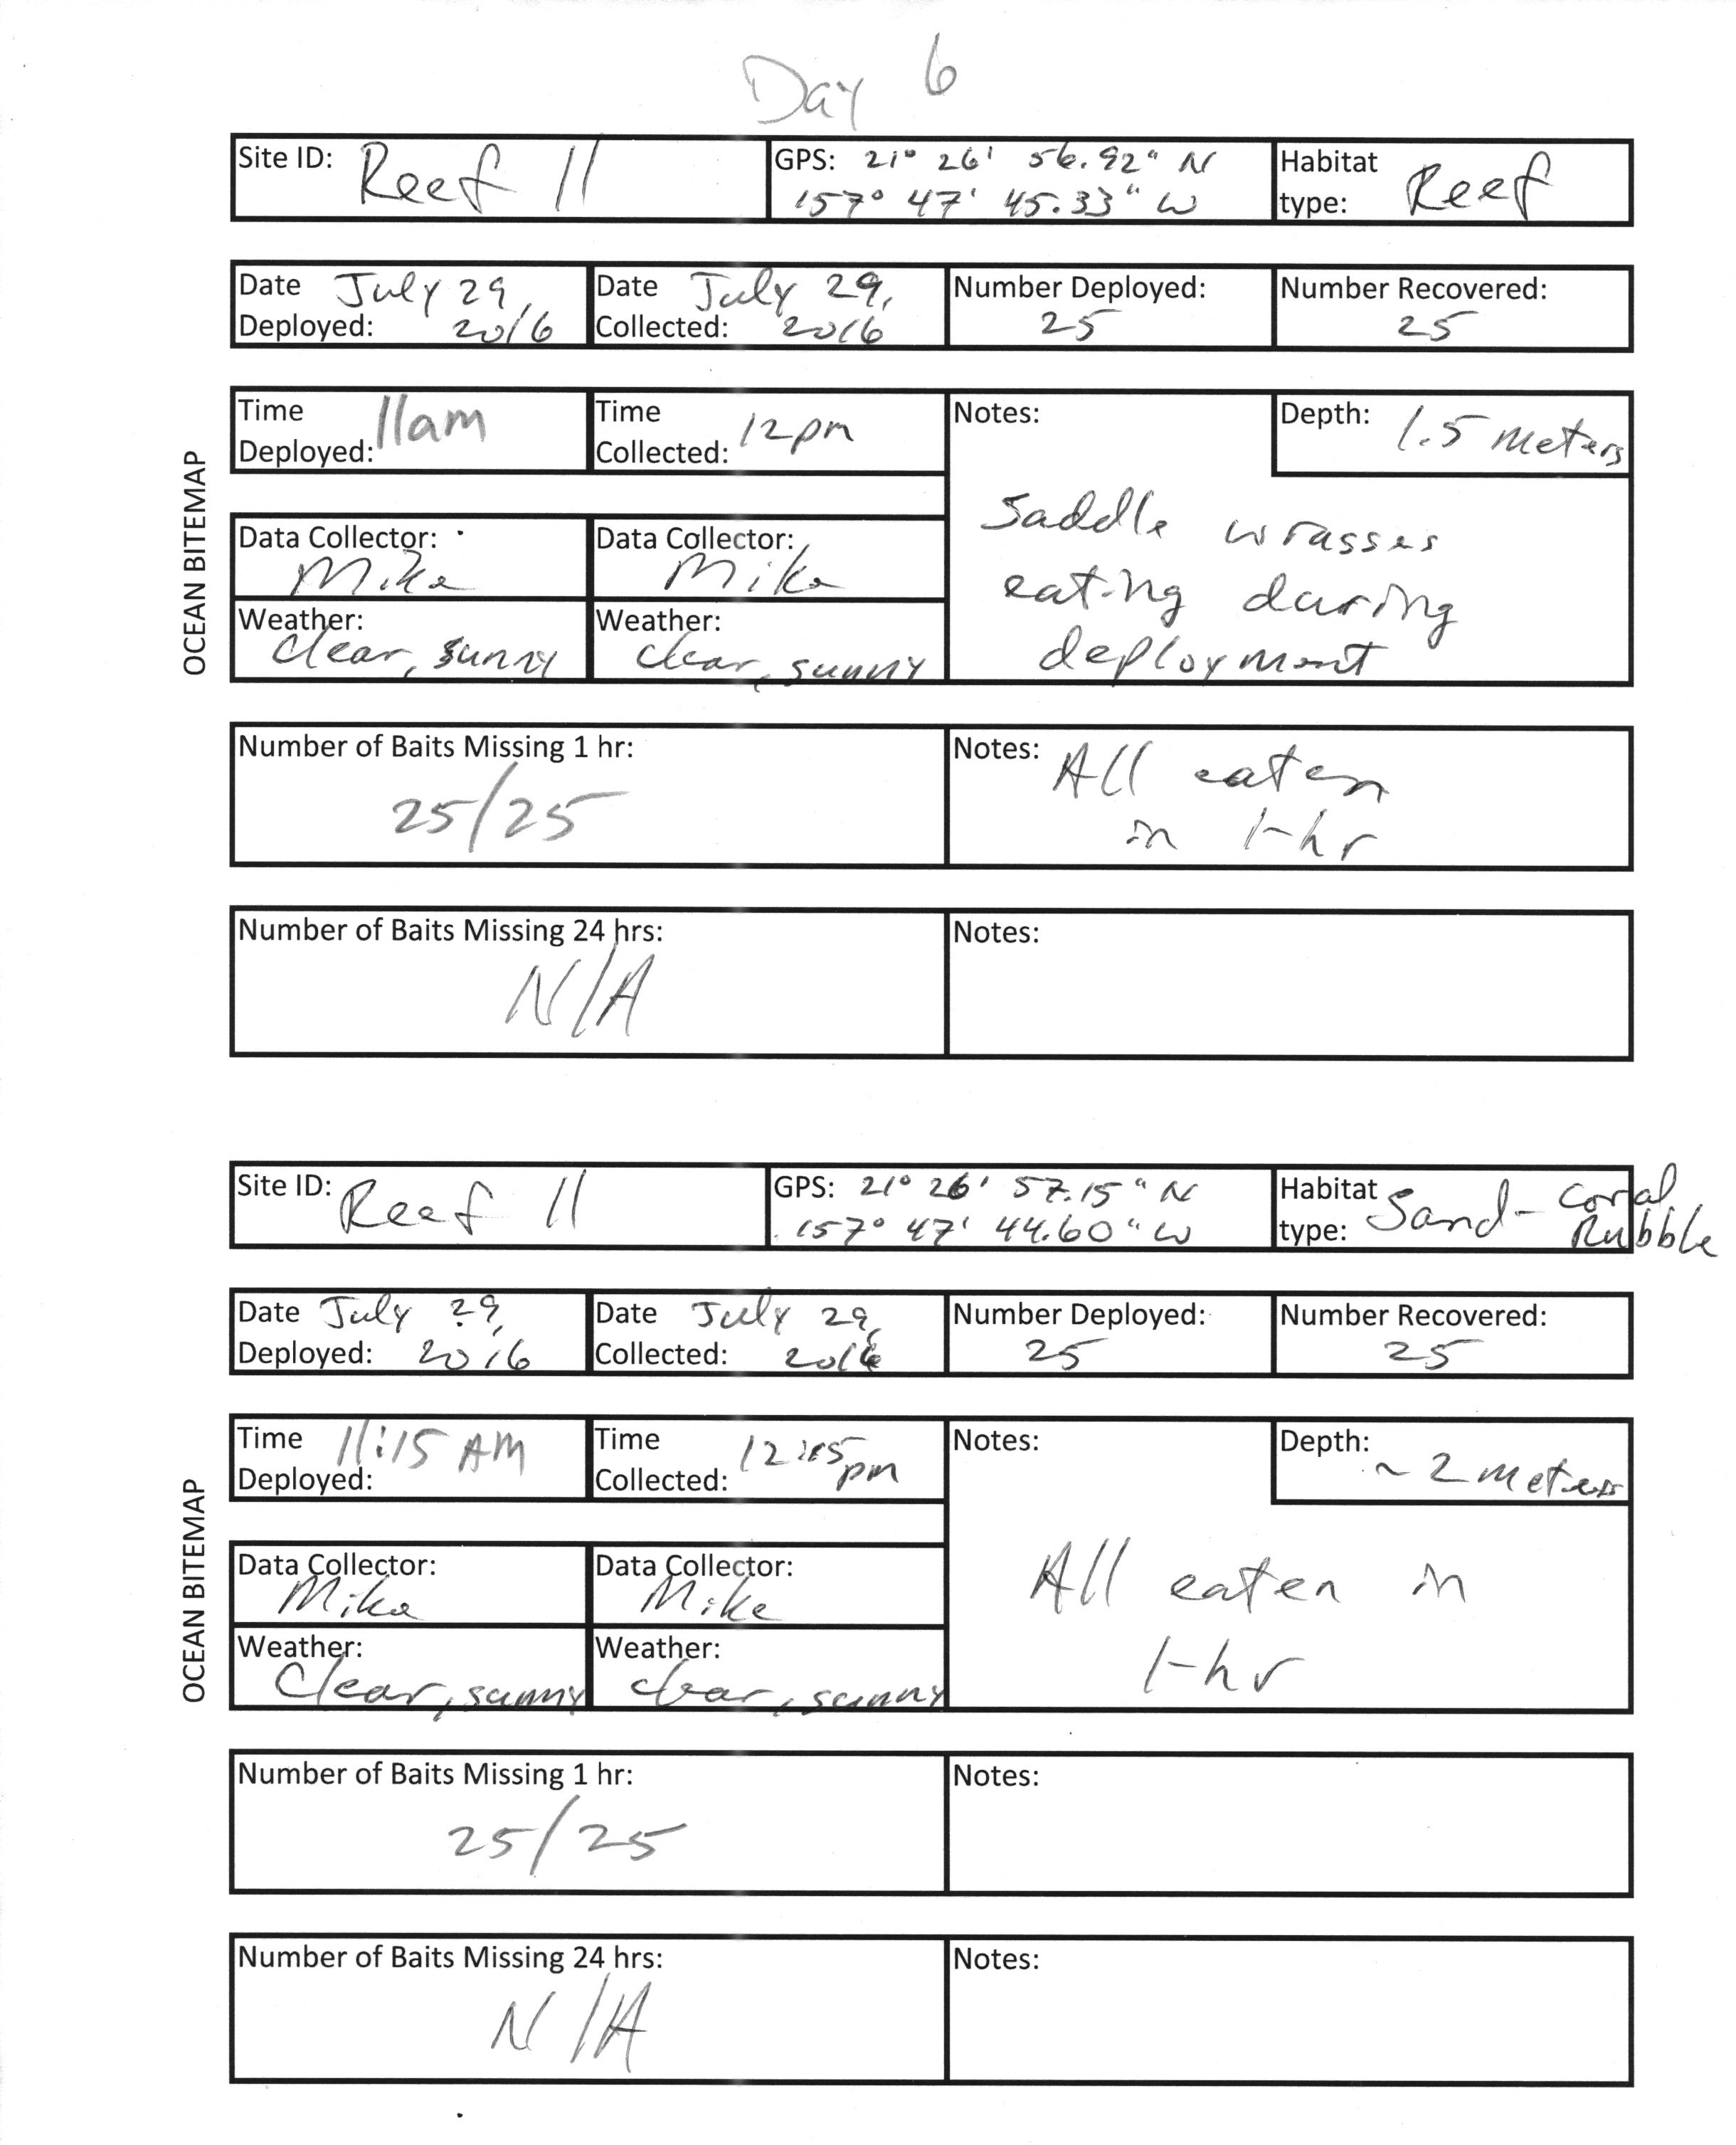 Day 6
Site ID: Reef 11
GPS: 21° 26' 56.92" N
157° 47' 45.33" W
Habitat type: Reef
Date Deployed: July 29, 2016
Date Collected: July 29, 2016
Number Deployed: 25
Number Recovered: 25
Time Deployed: 11am
Time Collected: 12pm
Notes:
Saddle wrasses
eating during
deployment
Depth: 1.5 meters
OCEAN BITEMAP
Data Collector: Mike
Data Collector: Mike
Weather: clear, sunny
Weather: clear, sunny
Number of Baits Missing 1 hr:
25/25
Notes: All eaten
in 1-hr
Number of Baits Missing 24 hrs:
N/A
Notes:
Site ID: Reef 11
GPS: 21° 26' 57.15" N
157° 47' 44.60" W
Habitat type: Sand-Coral Rubble
Date Deployed: July 29, 2016
Date Collected: July 29, 2016
Number Deployed: 25
Number Recovered: 25
Time Deployed: 11:15 AM
Time Collected: 12:15 pm
Notes:
All eaten in
1-hr
Depth: ~ 2 meters
OCEAN BITEMAP
Data Collector: Mike
Data Collector: Mike
Weather: Clear, sunny
Weather: clear, sunny
Number of Baits Missing 1 hr:
25/25
Notes:
Number of Baits Missing 24 hrs:
N/A
Notes: